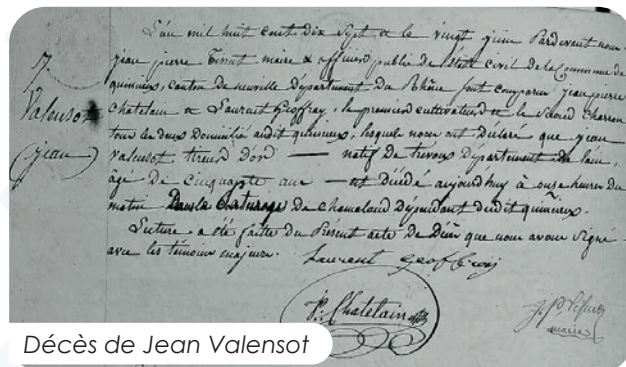 L'an mil huit cent dix Sept & le vingt juin Pardevant nous
jean pierre maire & officier public de l'état civil de la Commune de
quincieux, canton de neuville département du Rhône sont comparu jean pierre
chatelain & Laurent Geoffray, le premier cultivateur & le Second charron
tous les deux domiciliés audit quincieux, lesquels nous ont déclaré que jean
valensot tireur d'or — natif de trevoux département de l'ain,
âgé de cinquante ans — est décédé aujourd'huy à onze heures du
matin dans de chamaland dépendant dudit quincieux.
Lecture a été faitte du Présent acte de Décès que nous avons Signé
avec les témoins majeurs.
7
Valensot
(jean)
Laurent Geoffray
P. Chatelain
maire
Décès de Jean Valensot